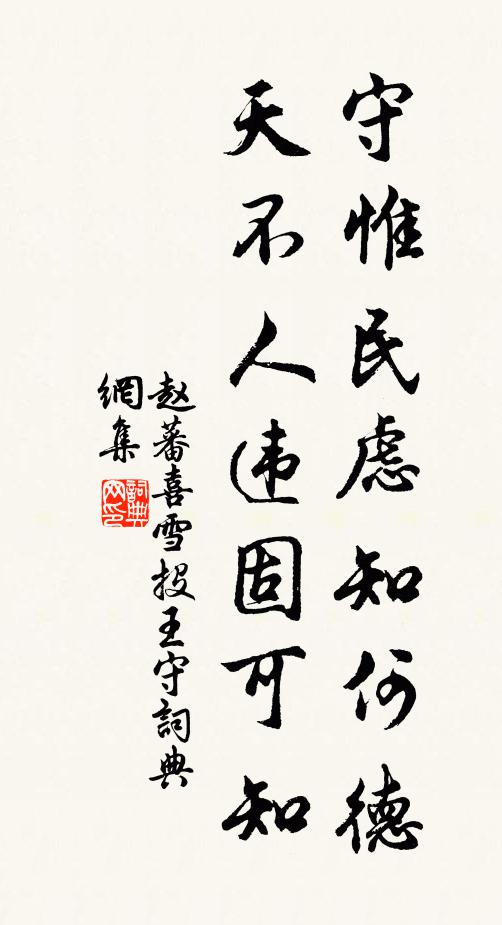 守惟民虑知何德
天不人违固可知
赵蕃喜雪投王守詞典
網集
詞典
网印